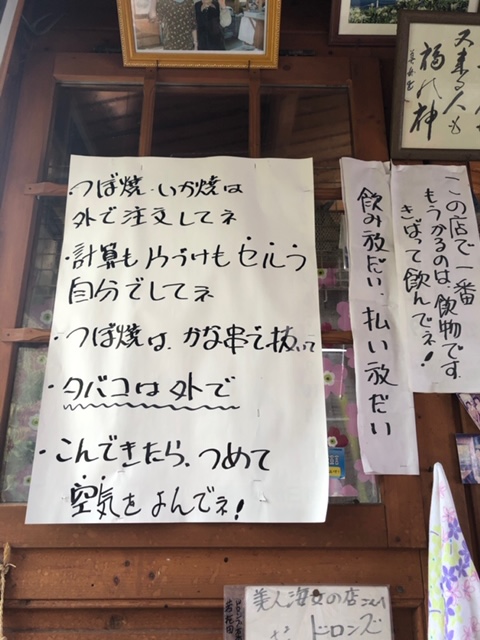 ・つぼ焼・いか焼は
外で注文してネ
・計算も片づけもセルフ
自分でしてネ
・つぼ焼は、かな串で抜いて
・タバコは外で
・こんできたら、つめて
空気をよんでネ！
この店で一番
もうかるのは、飲物です。
きばって飲んでネ！
飲み放だい、払い放だい
又来る人も
福の神
美人海女の店